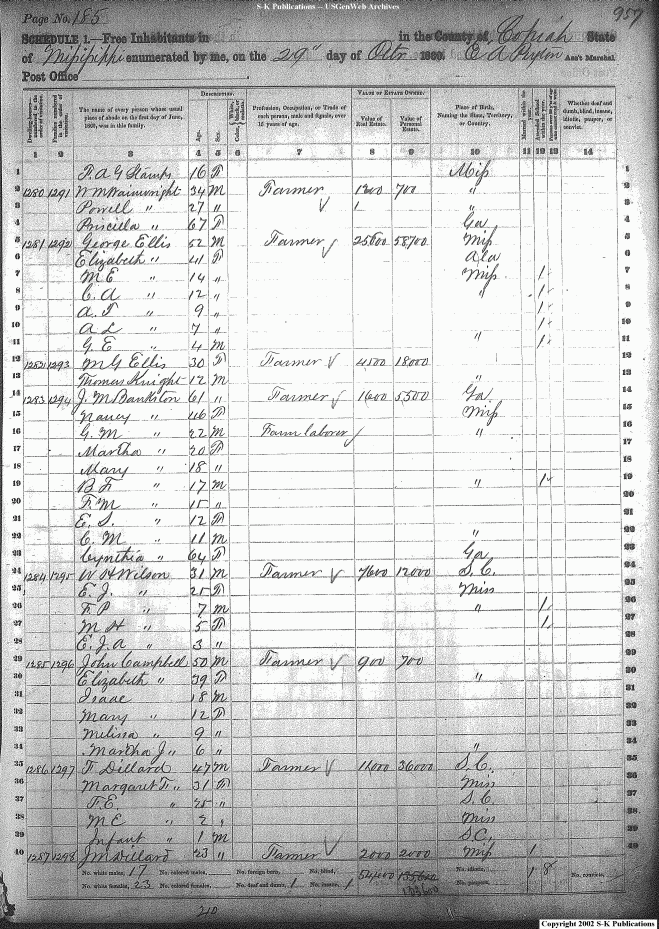 S-K Publications -- USGenWeb Archives
Page No. 185 957
SCHEDULE 1.—Free Inhabitants in in the County of Copiah State
of Mississippi enumerated by me, on the 29" day of Octr 1860. E A Peyton Ass't Marshal.
Post Office
DESCRIPTION. VALUE OF ESTATE OWNED.
The name of every person whose usual place of abode on the first day of June, 1860, was in this family. Age. Sex. Profession, Occupation, or Trade of each person, male and female, over 15 years of age. Value of Real Estate. Value of Personal Estate. Place of Birth, Naming the State, Territory, or Country. Married within the year. Whether deaf and dumb, blind, insane, idiotic, pauper, or convict.
1 2 3 4 5 6 7 8 9 10 11 12 13 14
1 F. A G Stamps 16 F Miss 1
2 1280 1291 W M Wainwright 34 M Farmer 1200 700 " 2
3 Powell " 27 " " 3
4 Priscilla " 67 F Ga 4
5 1281 1292 George Ellis 52 M Farmer 25600 58700 Miss 5
6 Elizabeth " 41 F Ala 6
7 M E " 14 " Miss 1 7
8 C. A " 12 " " 1 8
9 A. F " 9 " 1 9
10 A L " 7 " 1 10
11 G E " 4 M " 1 11
12 1282 1293 M G Ellis 30 F Farmer 4500 18000 12
13 Thomas Knight 12 M " 13
14 1283 1294 J. M Bankston 61 " Farmer 1600 5,500 Ga 14
15 Nancy " 46 F Miss 15
16 G. M " 22 M Farm laborer " 16
17 Martha " 20 F 17
18 Mary " 18 " 18
19 B F " 17 M " 1 19
20 F. M " 15 " 20
21 E. S. " 12 F 21
22 C. M " 11 M " 22
23 Cynthia " 64 F Ga 23
24 1284 1295 W H Wilson 31 M Farmer 7600 12000 S. C. 24
25 E. J. " 25 F Miss 25
26 F. P " 7 M " 1 26
27 M H " 5 F 1 27
28 E. J. A " 3 " 28
29 1285 1296 John Campbell 50 M Farmer 900 700 29
30 Elizabeth " 39 F " 30
31 Isaac 18 M 31
32 Mary " 12 F 32
33 Melissa " 9 " 33
34 Martha J " 6 " " 34
35 1286 1297 F Dillard 47 M Farmer 11000 36000 S. C. 35
36 Margaret F " 31 F Miss 36
37 F. E " 25 " S. C. 37
38 M E " 2 " Miss 38
39 Infant " 1 M S C, 39
40 1287 1298 J M Dillard 23 " Farmer 2000 2000 Miss 1 40
No. white males, 17 No. colored males, No. foreign born, No. blind, 54400 133,600 No. idiotic, 1 8 No. convicts,
No. white females, 23 No. colored females, No. deaf and dumb, 1 No. insane, 1 133600 No. paupers,
210
Copyright 2002 S-K Publications